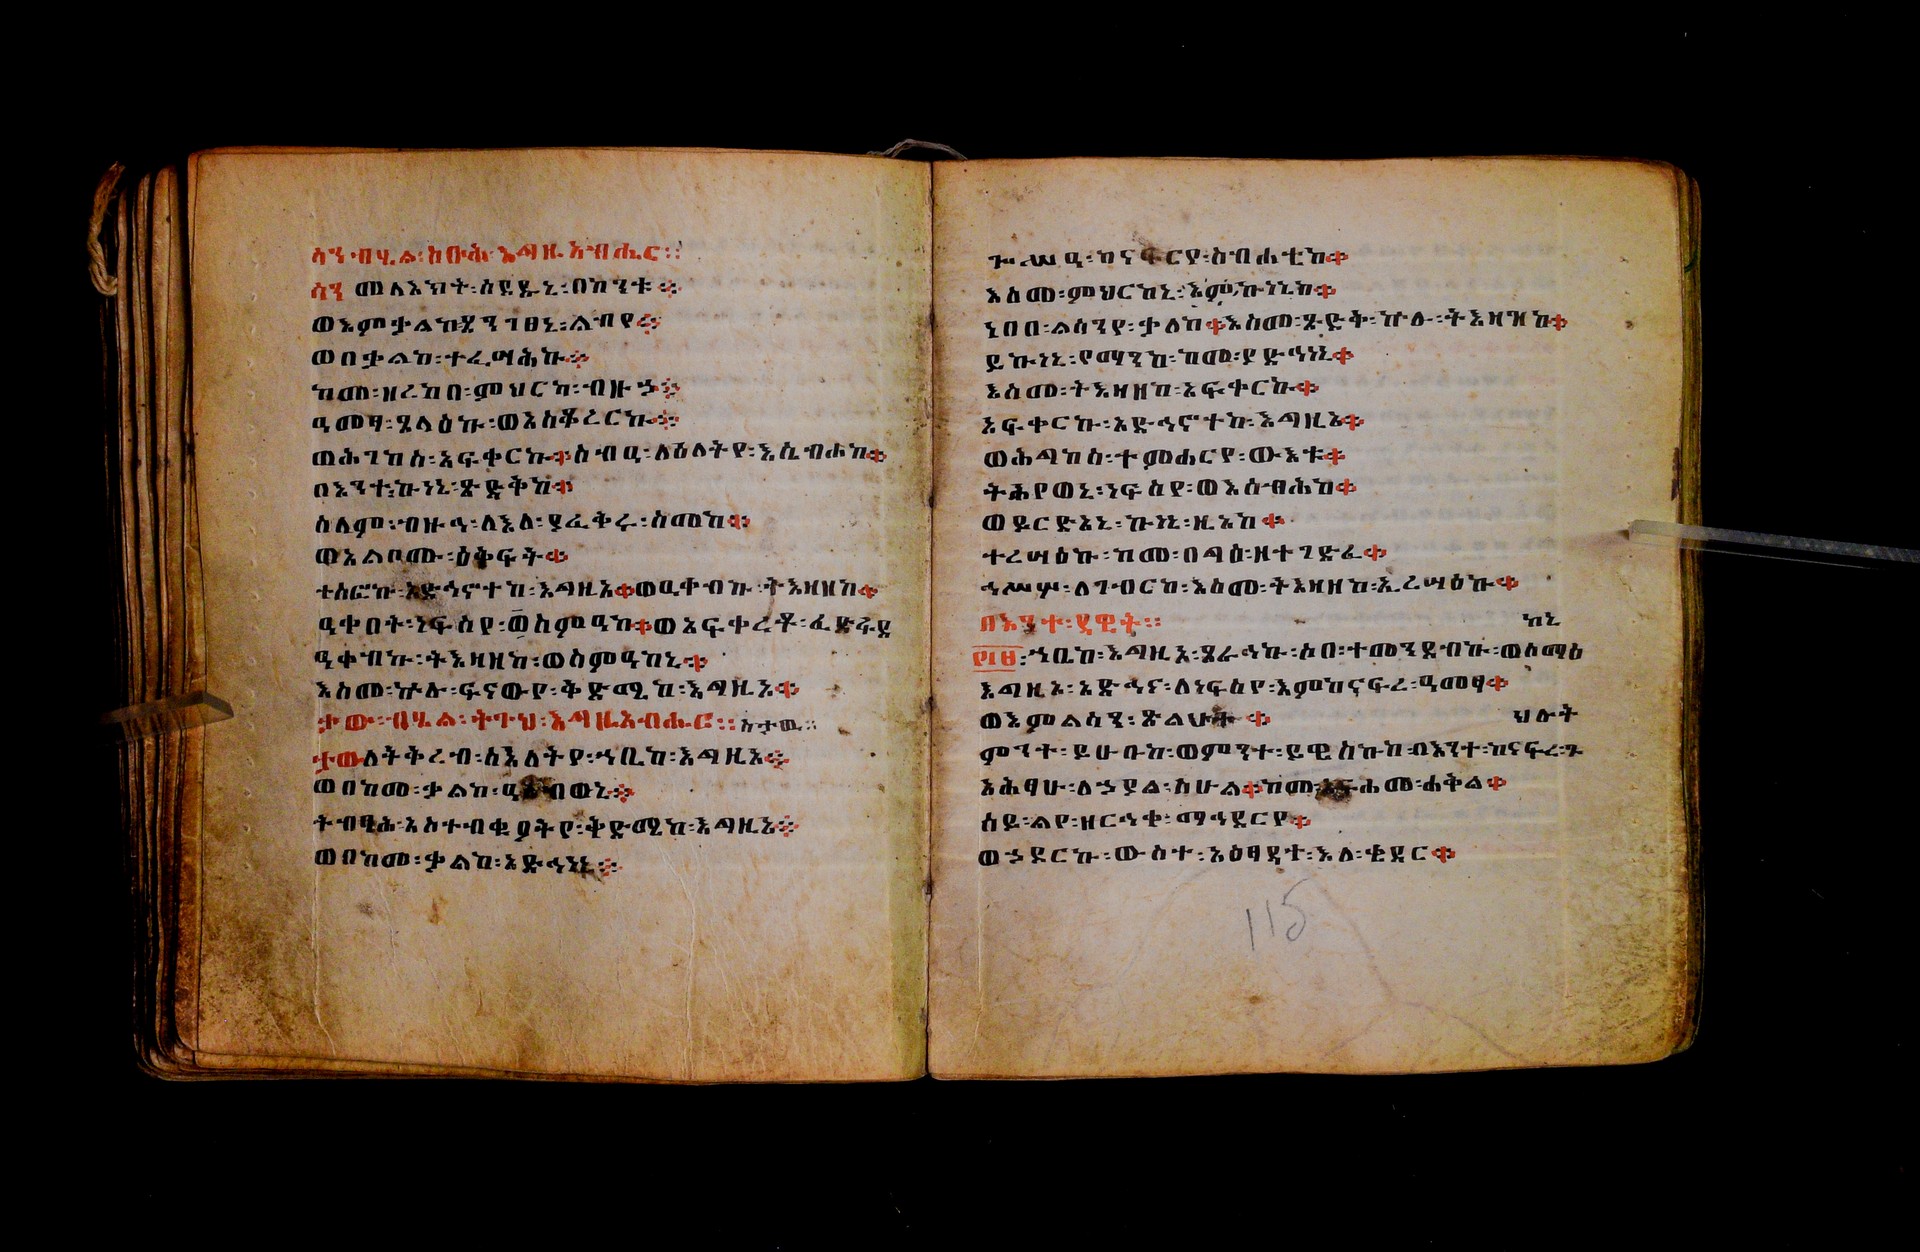 ሳን፡ብሂል፡ስቡሕ፡እግዚአብሔር።
ሳን መላእክት፡ሰደዱኒ፡በከንቱ።
ወእምቃልከ፡ደንገፀኒ፡ልብየ።
ወበቃልከ፡ተፈሣሕኩ።
ከመ፡ዘረከበ፡ምህርካ፡ብዙኃ።
ዓመፃ፡ጸላዕኩ፡ወአስቆረርኩ።
ወሕገከሰ፡አፍቀርኩ።ስብዒ፡ለዕለትየ፡እሴብሐከ።
በእንተ፡ኵነኔ፡ጽድቅከ።
ሰላም፡ብዙኅ፡ለእለ፡ያፈቅሩ፡ስመከ።
ወአልቦሙ፡ዕቅፍት።
ተሰፎኩ፡አድኅኖተከ፡እግዚአ።ወዐቀብኩ፡ትእዛዘከ።
ዓቀበት፡ነፍስየ፡ስምዓከ።ወአፍቀረቶ፡ፈድፋደ
ዓቀብኩ፡ትእዛዘከ፡ወስምዓከኒ።
እስመ፡ኵሉ፡ፍናውየ፡ቅድሜከ፡እግዚኦ።
ታው፡ብሂል፡ትጉህ፡እግዚአብሔር።
ታውለትቅረብ፡ስእለትየ፡ኀቤከ፡እግዚአ።
ወበከመ፡ቃልከ፡ወኒ።
ትብፃሕ፡አስተብቁዖትየ፡ቅድሜከ፡እግዚኦ።
ወበከመ፡ቃልከ፡አድኅነኒ።
ከናፍርየ፡ስብሐቲከ።
እስመ፡ምህርከኒ፡ኵነኔከ።
ነበበ፡ልሳንየ፡ቃለከ።እስመ፡ጽድቅ፡ኵሉ፡ትእዛዝከ።
ይኩነኒ፡የማንከ፡ከመ፡ያድኅነኒ።
እስመ፡ትእዛዘከ፡አፍቀርኩ።
አፍቀርኩ፡አድኅኖተከ፡እግዚኦ።
ወሕግከሰ፡ተምሐርየ፡ውእቱ።
ትሕየወኒ፡ነፍስየ፡ወእሰብሕከ።
ወይርድአኒ፡ኵነኔ፡ዚአከ።
ተረሣዕኩ፡ከመ፡በግዕ፡ዘተገድፈ።
ኅሥሦ፡ለገብርከ፡እስመ፡ትእዛዘከ፡ኢረሣዕኩ።
በእንተ፡
ከኒ
፻፲፱፡ኀቤከ፡እግዚአ፡ጸራኅኩ፡ሶበ፡ተመንደብኩ፡ወሰማዕ
እግዚኦ፡አድኅና፡ለነፍስየ፡እምከናፍረ፡ዓመፃ።
ወእምልሳን፡ጽልሁት።
ህሉት
ምንት፡ይሁቡከ፡ወምንተ፡ይዌስኩከ፡በእንተ፡ከናፍረ፡ጉ
አሕፃሁ፡ለኃያል፡ስሁል።ከመ፡ሐመ፡ሐቅል።
ሰይ፡ልየ፡ዘርኅቀ፡ማኅደርየ።
ወኃደርኩ፡ውስተ፡አዕፃደተ፡እለ፡ቄዳር።
115